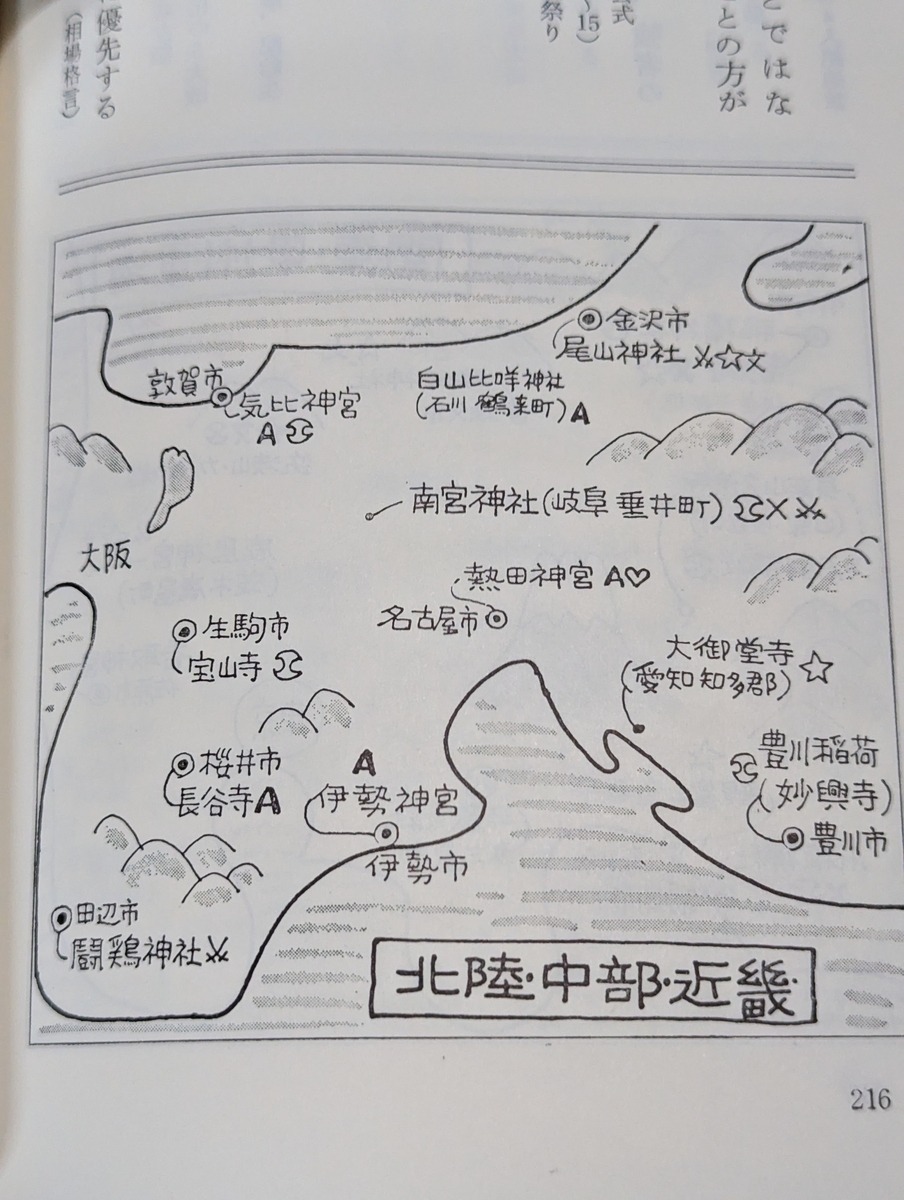 とではな
ことの方が
公式
~15)
祭り
優先する
(相場格言)
金沢市
尾山神社 ☆文
敦賀市
気比神宮
A
白山比咩神社
(石川 鶴来町) A
南宮神社(岐阜 垂井町)
大阪
熱田神宮 A♡
名古屋市
生駒市
宝山寺
大御堂寺
(愛知 知多郡) ☆
桜井市
長谷寺A
A
伊勢神宮
伊勢市
豊川稲荷
(妙興寺)
豊川市
田辺市
闘鶏神社
北陸・中部・近畿
216